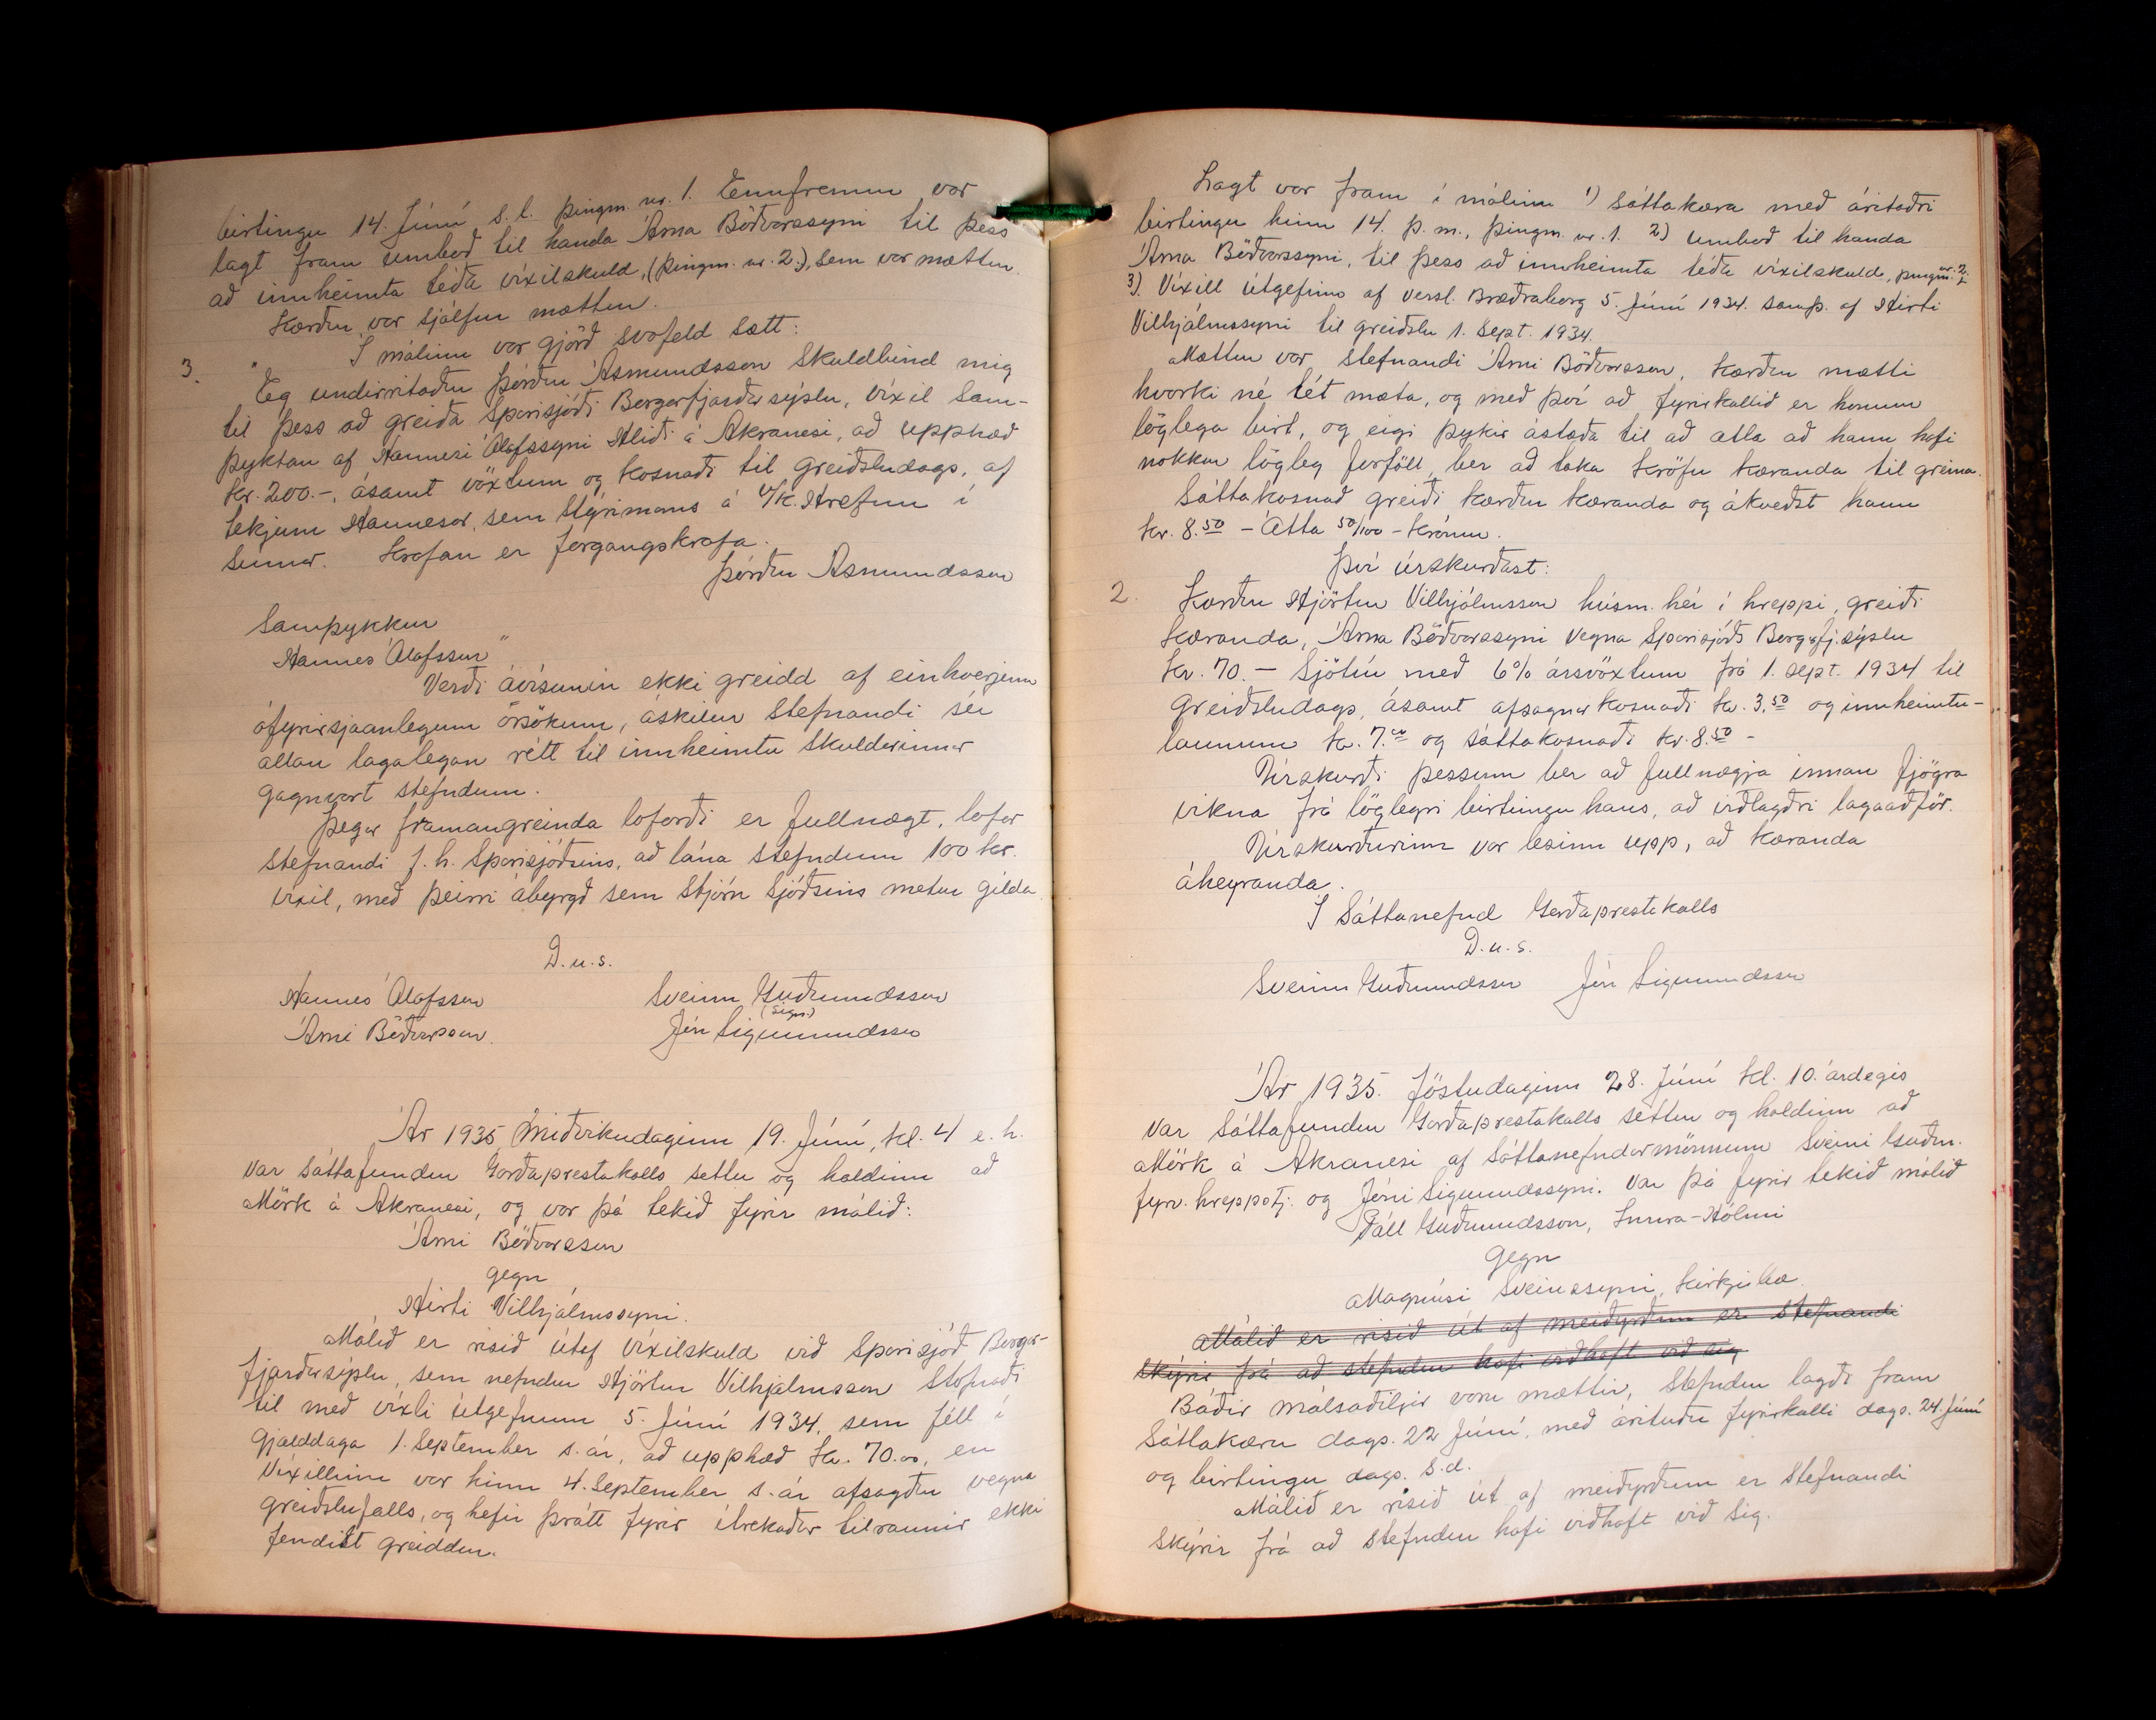 birtingu 14. Júní s.l. þingm. nr. 1. Ennfremur var
lagt fram umboð til handa Árna Böðvarssyni til þess
að innheimta téða víxilskuld, (þingm. nr. 2.), sem var mættur.
Kærður var sjálfur mættur.
Í málinu var gjörð svofeld sætt:
3. "Eg undirritaður Þórður Ásmundsson skuldbind mig
til þess að greiða Sparisjóði Borgarfjarðarsýslu, víxil sam-
þyktan af Hannesi Ólafssyni Hliði á Akranesi, að upphæð
kr. 200.-, ásamt vöxtum og kosnaði til greiðsludags, af
tekjum Hannesar, sem stýrimans á v/k. Hrefnu í
sumar. Krafan er forgangskrafa.
Þórður Ásmundsson
Samþykkur
Hannes Ólafsson"
Verði ávísunin ekki greidd af einhverjum
ófyrirsjáanlegum orsökum, áskilur stefnandi sér
allan lagalegan rétt til innheimtu skuldarinnar
gagnvart stefndum.
Þegar framangreinda loforði er fullnægt, lofar
stefnandi f.h. Sparisjóðsins, að lána stefndum 100 kr.
víxil, með þeirri ábyrgð sem stjórn sjóðsins metur gilda.
D.u.s.
Hannes Ólafsson Sveinn Guðmundsson
(sign.)
Árni Böðvarsson. Jón Sigmundsson
Ár 1935 Miðvikudaginn 19. Júní, kl. 4 e.h.
var sáttafundur Garðaprestakalls settur og haldinn að
Mörk á Akranesi, og var þá tekið fyrir málið:
Árni Böðvarsson
gegn
Hirti Vilhjálmssyni.
Málið er risið útaf víxilskuld við Sparisjóð Borgar-
fjarðarsýslu, sem nefndur Hjörtur Vilhjálmsson stofnaði
til með víxli útgefnum 5. Júní 1934, sem féll í
gjalddaga 1. September s. ár, að upphæð kr. 70.00, en
Víxillinn var hinn 4. September s. ár afsagður vegna
greiðslufalls, og hefir þrátt fyrir ítrekaðar tilraunir ekki
fendist greiddur.
Lagt var fram í málinu 1) Sáttakæra með áritaðri
birtingu hinn 14. þ.m., þingm. nr. 1. 2) Umboð til handa
Árna Böðvarssyni, til þess að innheimta téða víxilskuld, þingm. nr. 2.
3). Víxill útgefinn af Versl. Bræðraborg 5. Júní 1934. samþ. af Hirti
Vilhjálmssyni til greiðslu 1. Sept. 1934.
Mættur var stefnandi Árni Böðvarsson, kærður mætti
hvorki né lét mæta, og með því að fyrirkallið er honum
löglega birt, og eigi þykir ástæða til að ætla að hann hafi
nokkur lögleg forföll, ber að taka kröfu kæranda til greina.
Sáttakosnað greiði kærður kæranda og ákveðst hann
kr. 8.50 - Átta 50/100 - krónur.
Því úrskurðast:
2. Kærður Hjörtur Vilhjálmsson húsm. hér í hreppi, greiði
kæranda, Árna Böðvarssyni vegna Sparisjóðs Borgarfj.sýslu
kr. 70. - Sjötíu með 6% ársvöxtum frá 1. sept. 1934 til
greiðsludags, ásamt afsagnarkosnaði kr. 3.50 og innheimtu-
launum kr. 7.00 og sáttakosnaði kr. 8.50 -
Úrskurði þessum ber að fullnægja innan fjögra
vikna frá löglegri birtingu hans, að viðlagðri lagaaðför.
Úrskurðurinn var lesinn upp, að kæranda
áheyranda.
Í Sáttanefnd Garðaprestakalls
D.u.s.
Sveinn Guðmundsson Jón Sigmundsson
Ár 1935. Föstudaginn 28. Júní kl. 10. árdegis
var Sáttafundur Garðaprestakalls settur og haldinn að
Mörk á Akranesi af sáttanefndarmönnum Sveini Guðm.
fyrv. hreppstj. og Jóni Sigmundssyni. Var þá fyrir tekið málið
Páll Guðmundsson, Innra-Hólmi
gegn
Magnúsi Sveinssyni, Kirkjubæ.
Málið er risið út af meiðyrðum er stefnandi
skýrir frá að stefndur hafi viðhaft við sig
Báðir málsaðiljar voru mættir, Stefndur lagði fram
Sáttakæru dags. 22 Júní, með árituðu fyrirkalli dags. 24. Júní
og birtingu dags. s.d.
Málið er risið út af meiðyrðum er stefnandi
skýrir frá að stefndur hafi viðhaft við sig.